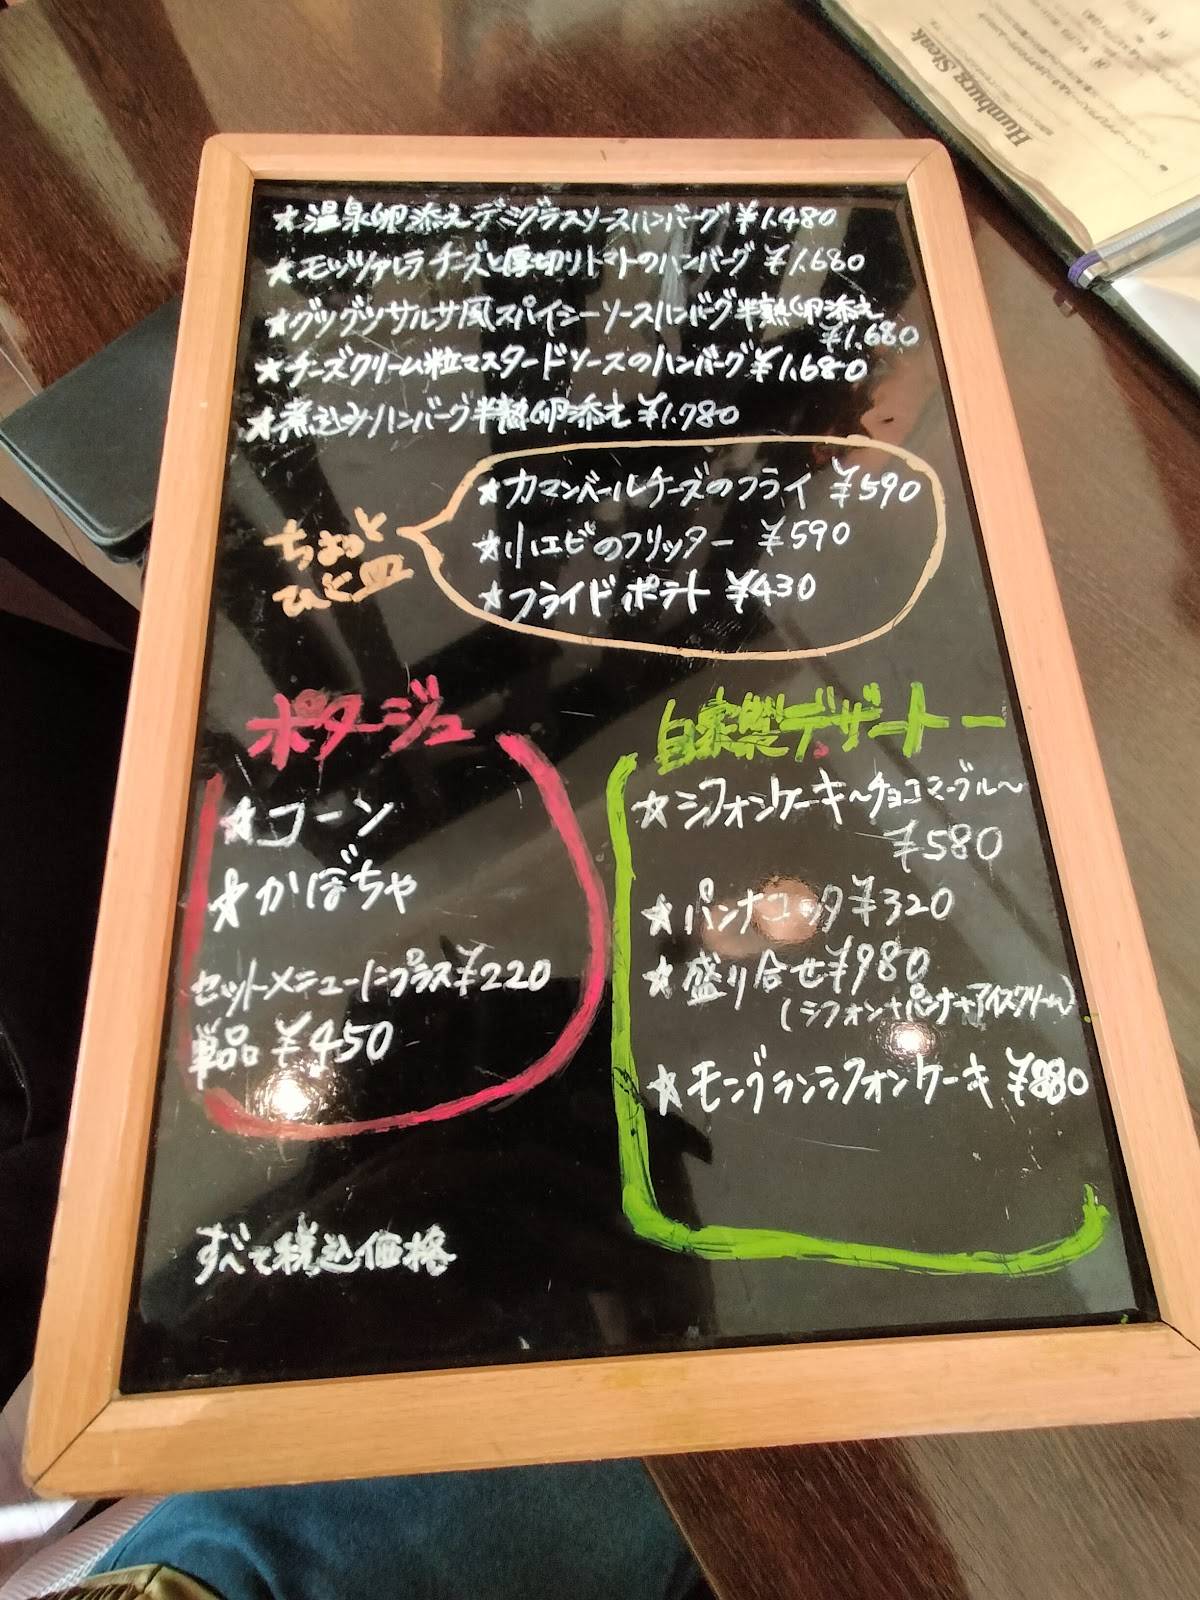 ★温泉卵添えデミグラスソースハンバーグ ¥1.480
★モッツァレラチーズと厚切りトマトのハンバーグ ¥1.680
★グツグツサルサ風スパイシーソースハンバーグ半熟卵添え
¥1.680
★チーズクリーム粒マスタードソースのハンバーグ ¥1.680
★煮込みハンバーグ半熟卵添え ¥1.780
ちょっと
ひと皿
★カマンベールチーズのフライ ¥590
★小エビのフリッター ¥590
★フライドポテト ¥430
ポタージュ
☆コーン
☆かぼちゃ
セットメニューにプラス¥220
単品 ¥450
自家製デザートー
☆シフォンケーキ〜チョコマーブル〜
¥580
★パンナコッタ ¥320
★盛り合せ ¥980
(シフォン+パンナ+アイスクリーム)
★モンブランシフォンケーキ ¥880
すべて税込価格
Humburg Steak